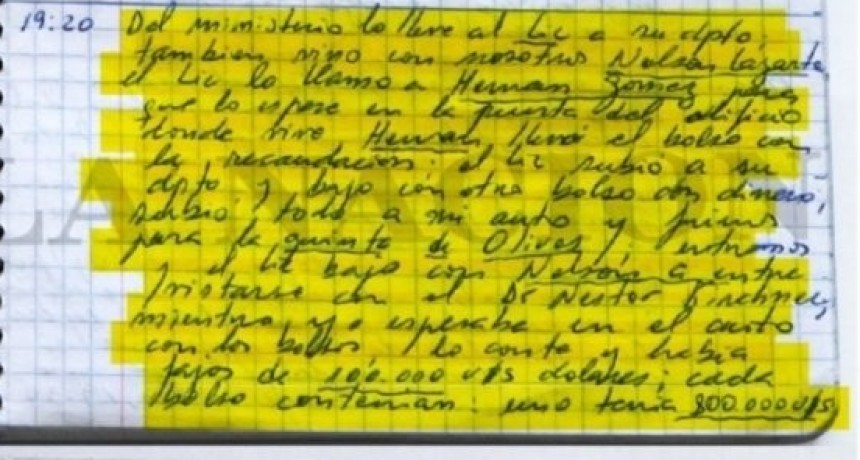 19:20 Del ministerio lo lleve al Lic a su dpto,
tambien vino con nosotros Nelson Lazarte,
el Lic lo llamo a Hernan Gomez para
que lo espere en la puerta del edificio
donde vive Hernan llevó el bolso con
la recaudacion: el Lic subio a su
dpto, y bajo con otro bolso con dinero,
subio todo a mi auto y fuimos
para la quinta de Olivos; entramos
y el Lic bajo con Nelson a entre
vistarse con el Dr Nestor Kirchner,
mientras yo esperaba en el auto
con los bolsos / lo conte y habia
fajos de 100.000 U$S dolares; cada
bolso contenian: uno tenia 800.000 U$S
LA NACION